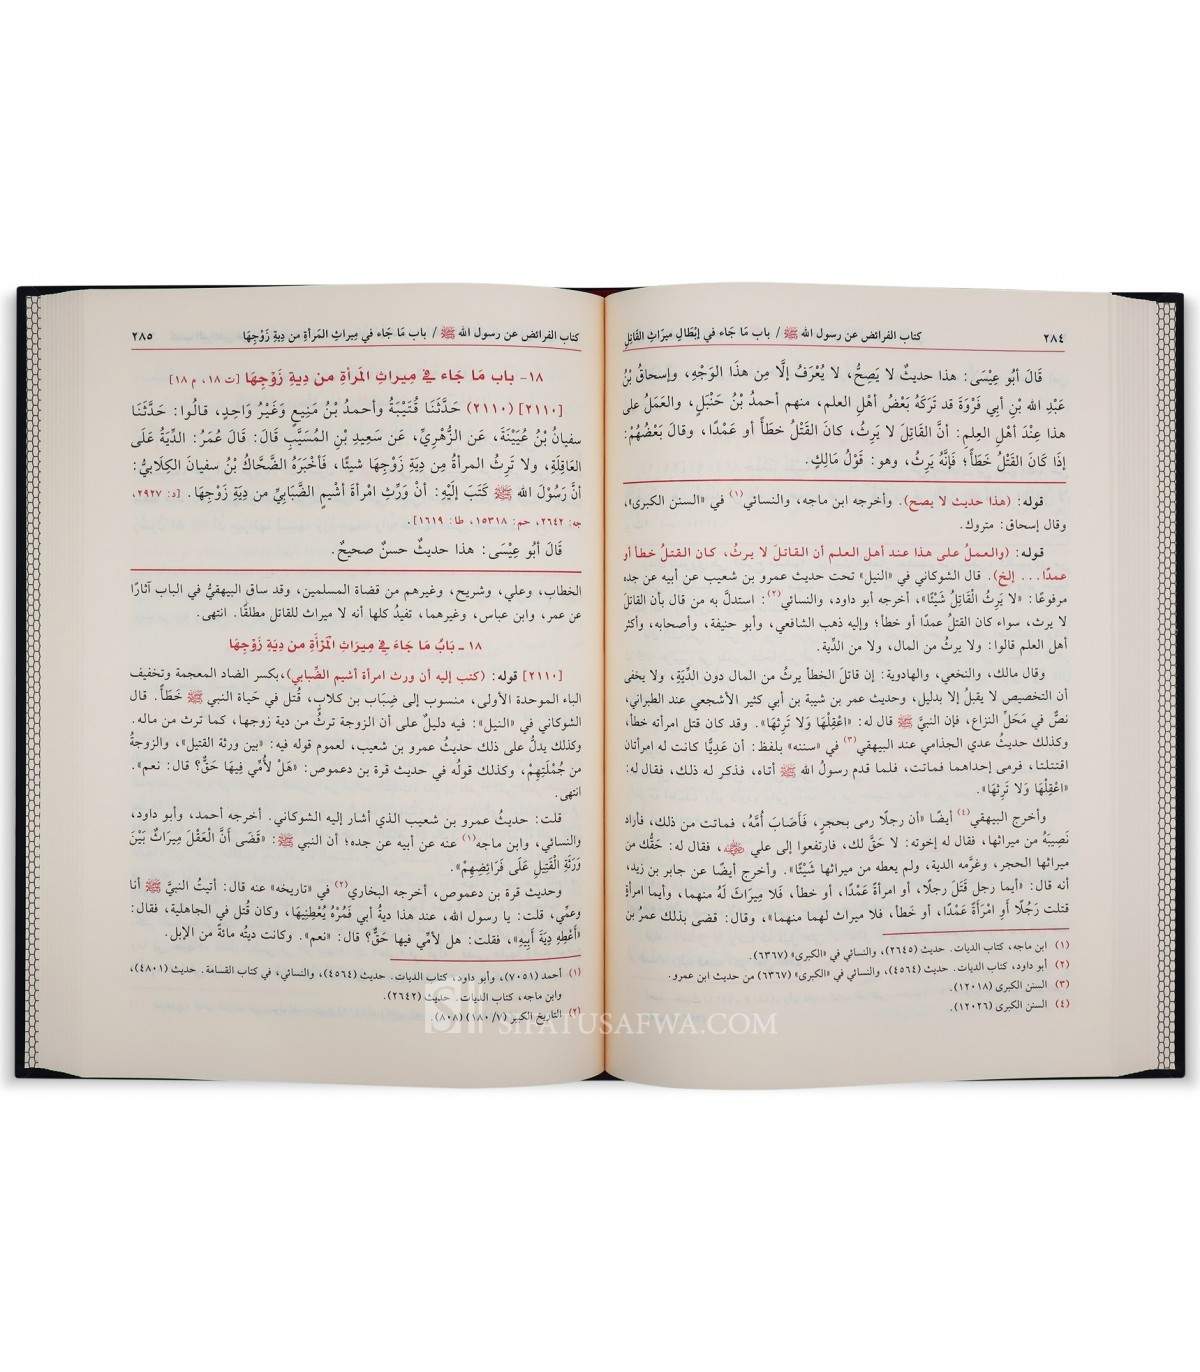 ٢٨٤ كتاب الفرائض عن رسول الله ﷺ / باب مَا جَاء في إبْطَالِ ميرَاثِ القَاتِلِ
قَالَ أبُو عِيْسَى: هذا حديثٌ لا يَصِحُّ، لا يُعْرَفُ إلَّا مِن هذَا الوَجْهِ، وإسحاقُ بْنُ
عَبْدِ الله بْنِ أبِي فَرْوَةَ قد تَرَكَهُ بَعْضُ أهْلِ العلم، منهم أحمدُ بْنُ حَنْبَلٍ، والعَمَلُ على
هذا عِنْدَ أهْلِ العِلم: أنَّ القَاتِلَ لا يَرِثُ، كانَ القَتْلُ خطَأً أو عَمْدًا، وقالَ بَعْضُهُمْ:
إذَا كَانَ القَتْلُ خَطَأً؛ فَإنَّهُ يَرِثُ، وهو: قَوْلُ مَالِكٍ.
قوله: (هذا حديث لا يصح). وأخرجه ابن ماجه، والنسائي(١) في «السنن الكبرى»،
وقال إسحاق: متروك.
قوله: (والعملُ على هذا عند أهل العلم أن القاتلَ لا يرثُ، كان القتلُ خطأ أو
عمدًا... إلخ). قال الشوكاني في «النيل» تحت حديث عمرو بن شعيب عن أبيه عن جده
مرفوعًا: «لا يَرِثُ الْقَاتِلُ شَيْئًا»، أخرجه أبو داود، والنسائي(٢): استدلَّ به من قال بأن القاتلَ
لا يرث، سواء كان القتلُ عمدًا أو خطأ؛ وإليه ذهب الشافعي، وأبو حنيفة، وأصحابه، وأكثر
أهل العلم قالوا: ولا يرثُ من المال، ولا من الدِّية.
وقال مالك، والنخعي، والهادوية: إن قاتلَ الخطأ يرثُ من المال دون الدِّيَةِ، ولا يخفى
أن التخصيص لا يقبلُ إلا بدليل، وحديث عمر بن شيبة بن أبي كثير الأشجعي عند الطبراني،
نصٌّ في مَحَلِّ النزاع، فإن النبيَّ ﷺ قال له: «اعْقِلْهَا وَلا تَرِثهَا». وقد كان قتل امرأته خطأ،
وكذلك حديثُ عدي الجذامي عند البيهقي(٣) في «سننه» بلفظ: أن عَدِيًّا كانت له امرأتان
اقتتلتا، فرمى إحداهما فماتت، فلما قدم رسولُ الله ﷺ أتاه، فذكر له ذلك، فقال له:
«اعْقِلْهَا وَلا تَرِثهَا».
وأخرج البيهقي(٤) أيضًا «أن رجلًا رمى بحجرٍ، فَأصَابَ أُمَّهُ، فماتت من ذلك، فأراد
نَصِيبَهُ من ميراثها، فقال له إخوته: لا حَقَّ لك، فارتفعوا إلى علي ، فقال له: حَقُّكَ من
ميراثها الحجر، وغرَّمه الدية، ولم يعطه من ميراثها شَيْئًا». وأخرج أيضًا عن جابر بن زيد،
أنه قال: «أيما رجلٍ قَتَلَ رَجُلًا، أو امرأةً عَمْدًا، أو خطأ، فلا مِيرَاثَ لَهُ منهما، وأيما امرأة
قتلت رَجُلًا أو امْرَأةً عَمْدًا، أو خَطأ، فلا ميراث لهما منهما»، وقال: قضى بذلك عمرُ بن
(١) ابن ماجه، كتاب الديات. حديث (٢٦٤٥)، والنسائي في «الكبرى» (٦٣٦٧).
(٢) أبو داود، كتاب الديات. حديث (٤٥٦٤)، والنسائي في «الكبرى» (٦٣٦٧) من حديث ابن عمرو.
(٣) السنن الكبرى (١٢٠١٨).
(٤) السنن الكبرى (١٢٠٢٦).
كتاب الفرائض عن رسول الله ﷺ / باب مَا جَاء في مِيراثِ المَرأةِ من دِيَةِ زَوْجِهَا ٢٨٥
١٨- باب مَا جَاء فِي مِيراثِ المَرأةِ من دِيةِ زَوْجِهَا [ت ١٨، م ١٨]
[٢١١٠] (٢١١٠) حَدَّثَنَا قُتَيْبَةُ وأحمدُ بْنُ مَنِيعٍ وَغَيْرُ وَاحِدٍ، قالُوا: حَدَّثَنَا
سفيانُ بْنُ عُيَيْنَةَ، عَن الزُّهْرِيِّ، عَن سَعِيدِ بْنِ المُسَيَّبِ قَالَ: قَالَ عُمَرُ: الدِّيَةُ عَلَى
العَاقِلَةِ، ولا تَرِثُ المرأةُ مِن دِيَةِ زَوْجِهَا شيئًا، فَأخْبَرَهُ الضَّحَّاكُ بْنُ سفيانَ الكِلَابيُّ:
أنَّ رَسُوْلَ الله ﷺ كَتَبَ إلَيْهِ: أنْ وَرِّثِ امْرأةَ أشْيمِ الضَّبَابِيِّ من دِيَةِ زَوْجِهَا. [د: ٢٩٢٧،
جه: ٢٦٤٢، حم: ١٥٣١٨، طا: ١٦١٩].
قَالَ أبُو عِيْسَى: هذا حديثٌ حسنٌ صحيحٌ.
الخطاب، وعلي، وشريح، وغيرهم من قضاة المسلمين، وقد ساق البيهقيُّ في الباب آثارًا
عن عمر، وابن عباس، وغيرهما، تفيدُ كلها أنه لا ميراث للقاتل مطلقًا. انتهى.
١٨ ـ بَابُ مَا جَاءَ فِي مِيرَاثِ الْمَرْأةِ من دِيَةِ زَوْجِهَا
[٢١١٠] قوله: (كتب إليه أن ورث امرأة أشيم الضِّبابي)،بكسر الضاد المعجمة وتخفيف
الباء الموحدة الأولى، منسوب إلى ضِبَاب بن كلاب، قُتل في حَياة النبي ﷺ خَطَأً. قال
الشوكاني في «النيل»: فيه دليلٌ على أن الزوجة ترثُ من دية زوجها، كما ترث من ماله.
وكذلك يدلُّ على ذلك حديثُ عمرو بن شعيب، لعموم قوله فيه: «بين ورثة القتيل»، والزوجةُ
من جُمْلَتِهِمْ، وكذلك قولُه في حديث قرة بن دعموص: «هَلْ لأُمِّي فِيهَا حَقٌّ؟ قال: نعم».
انتهى.
قلت: حديثُ عمرو بن شعيب الذي أشار إليه الشوكاني. أخرجه أحمد، وأبو داود،
والنسائي، وابن ماجه(١) عنه عن أبيه عن جده؛ أن النبي ﷺ: «قَضَى أَنَّ الْعَقْلَ مِيرَاثٌ بَيْنَ
وَرَثَةِ الْقَتِيلِ عَلَى فَرَائِضِهِمْ».
وحديث قرة بن دعموص، أخرجه البخاري(٢) في «تاريخه» عنه قال: أتيتُ النبيَّ ﷺ أنا
وعمِّي، قلت: يا رسول الله، عند هذا ديةُ أبي فَمُرْهُ يُعْطِنِيهَا، وكان قُتل في الجاهلية، فقال:
«أَعْطِهِ دِيَةَ أَبِيهِ»، فقلت: هل لأمِّي فيها حَقٌّ؟ قال: «نعم». وكانت ديتُه مائةً من الإبل.
(١) أحمد (٧٠٥١)، وأبو داود، كتاب الديات. حديث (٤٥٦٤)، والنسائي، في كتاب القسامة. حديث (٤٨٠١)،
وابن ماجه، كتاب الديات. حديث (٢٦٤٢).
(٢) التاريخ الكبير (٧/ ١٨٠) (٨٠٨).
SIFATUSAFWA.COM